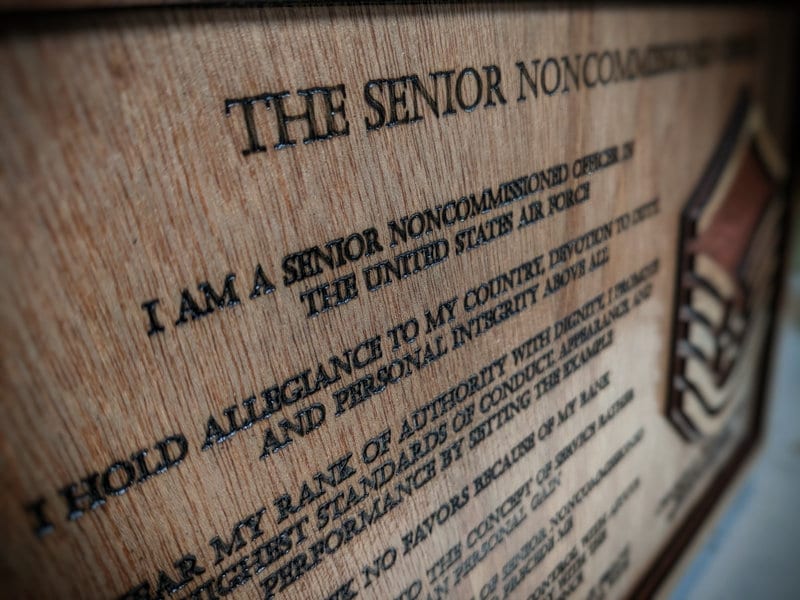 THE SENIOR NONCOMMISSIONED
I AM A SENIOR NONCOMMISSIONED OFFICER IN
THE UNITED STATES AIR FORCE
I HOLD ALLEGIANCE TO MY COUNTRY, DEVOTION TO DUTY,
AND PERSONAL INTEGRITY ABOVE ALL
EAR MY RANK OF AUTHORITY WITH DIGNITY, I PROMOTE
HIGHEST STANDARDS OF CONDUCT, APPEARANCE AND
PERFORMANCE BY SETTING THE EXAMPLE
K NO FAVORS BECAUSE OF MY RANK
TO THE CONCEPT OF SERVICE RATHER
AN PERSONAL GAIN
OF SENIOR NONCOMMISSIONED